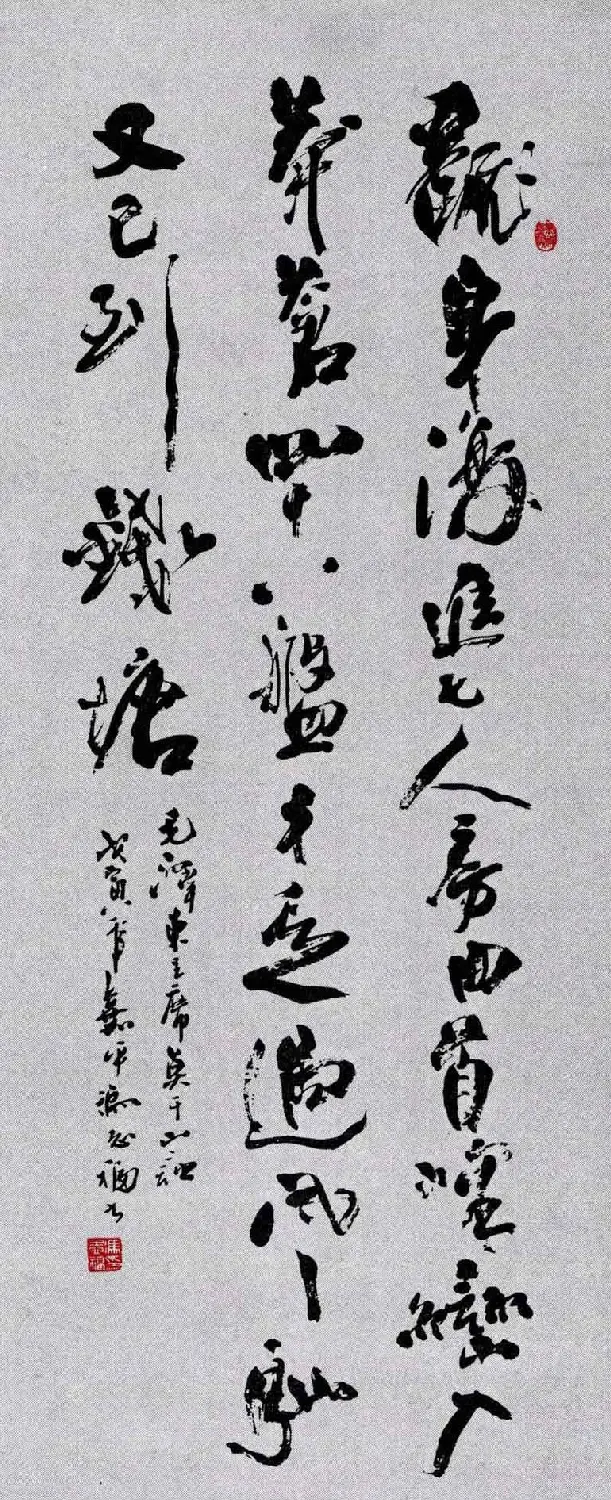 翻身復進七人房回首峰巒入
莽蒼四十八盤才走過風馳
又已到錢塘
毛澤東主席莫干山詩
戊寅年嘉平馮志福書